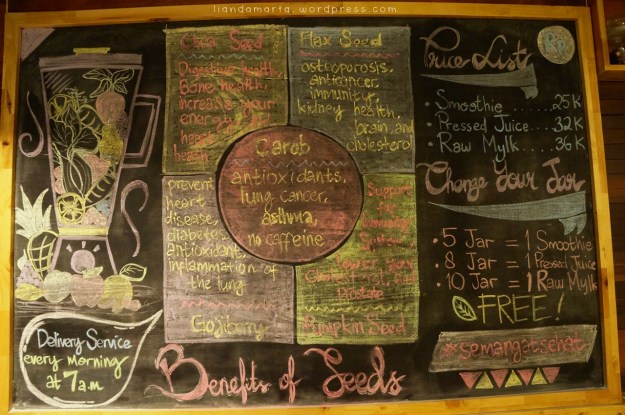 liandamarta.wordpress.com
Chia Seed
Digestive health,
Bone health,
increase your
energy,
heart
health
Flax Seed
osteoporosis,
anticancer,
immunity,
kidney health,
brain, and
cholesterol
Carob
antioxidants,
lung cancer,
asthma,
no caffeine
prevent
heart
disease,
diabetes,
antioxidant,
inflammation of
the lung
Gojiberry
Support
for
System
prostate
Pumpkin Seed
Benefits of Seeds
Delivery Service
every morning
at 7 a.m
Price List
• Smoothie ..... 25K
• Pressed Juice... 32K
• Raw Mylk .... 36K
Change Your Jar
• 5 Jar = 1 Smoothie
• 8 Jar = 1 Pressed Juice
• 10 Jar = 1 Raw Mylk
FREE!
#semangatsehat